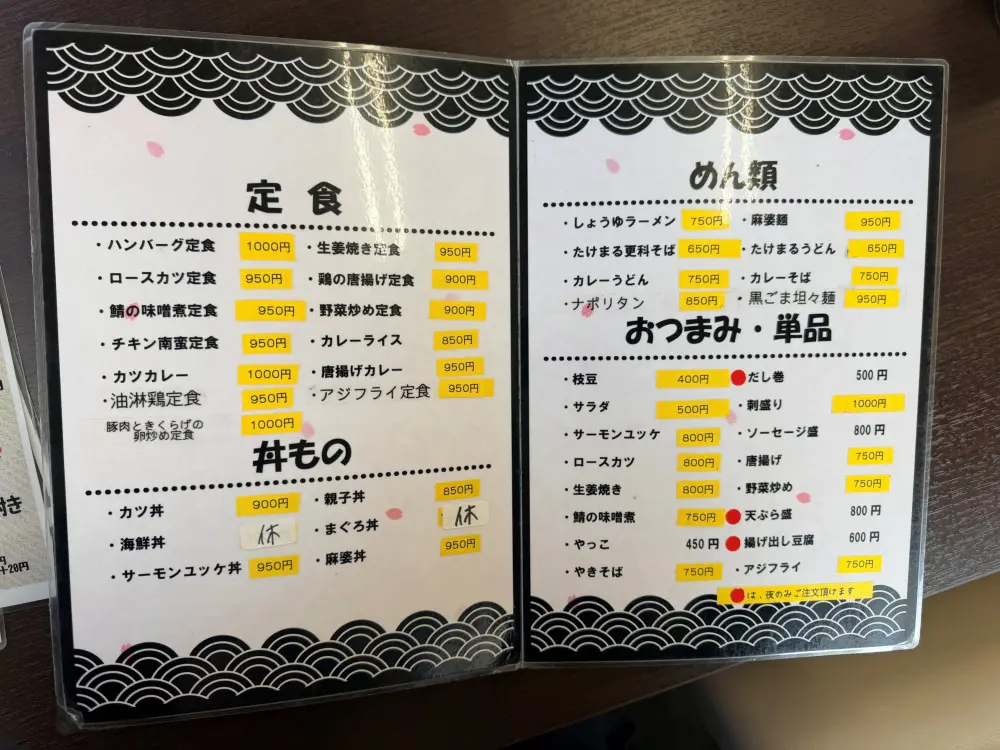 定食
・ハンバーグ定食 1000円 ・生姜焼き定食 950円
・ロースカツ定食 950円 ・鶏の唐揚げ定食 900円
・鯖の味噌煮定食 950円 ・野菜炒め定食 900円
・チキン南蛮定食 950円 ・カレーライス 850円
・カツカレー 1000円 ・唐揚げカレー 950円
・油淋鶏定食 950円 ・アジフライ定食 950円
豚肉ときくらげの
卵炒め定食 1000円
丼もの
・カツ丼 900円 ・親子丼 850円
・海鮮丼 休 ・まぐろ丼 休
・サーモンユッケ丼 950円 ・麻婆丼 950円
めん類
・しょうゆラーメン 750円 ・麻婆麺 950円
・たけまる更科そば 650円 ・たけまるうどん 650円
・カレーうどん 750円 ・カレーそば 750円
・ナポリタン 850円 ・黒ごま坦々麺 950円
おつまみ・単品
・枝豆 400円 だし巻 500円
・サラダ 500円 ・刺盛り 1000円
・サーモンユッケ 800円 ・ソーセージ盛 800円
・ロースカツ 800円 ・唐揚げ 750円
・生姜焼き 800円 ・野菜炒め 750円
・鯖の味噌煮 750円 天ぷら盛 800円
・やっこ 450円 揚げ出し豆腐 600円
・やきそば 750円 ・アジフライ 750円
は、夜のみご注文頂けます
付き
円
+20円